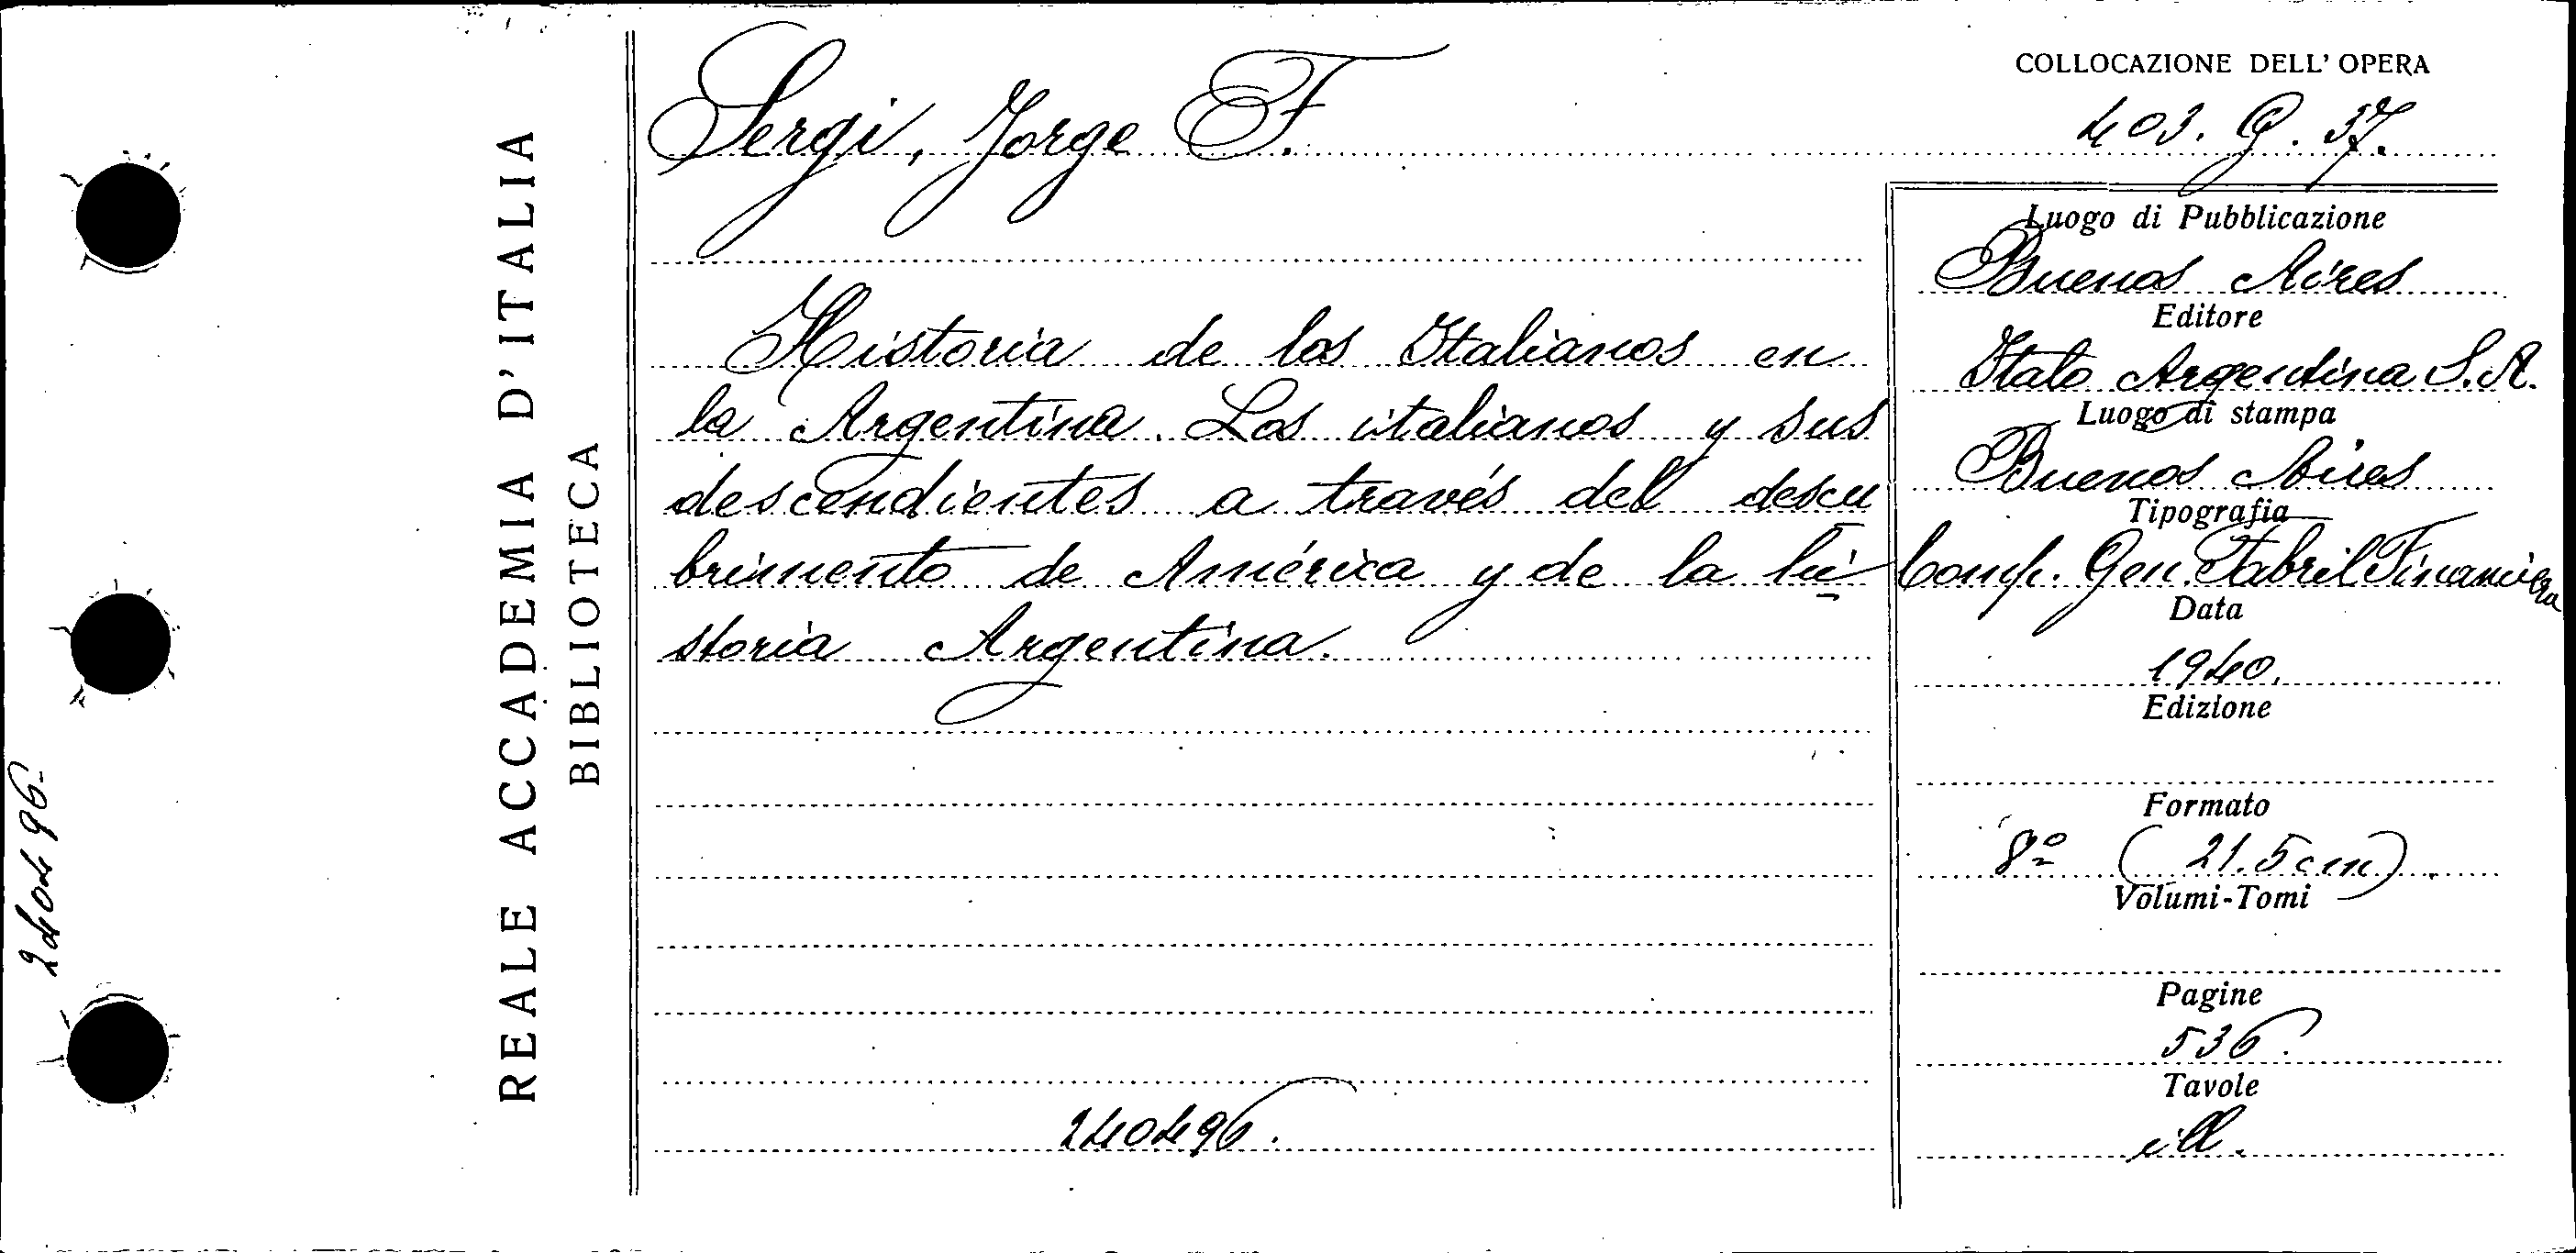 REALE ACCADEMIA D'ITALIA
BIBLIOTECA
240496.
Sergi, Jorge F.
Historia de los Italianos en
la Argentina. Los italianos y sus
descendientes a través del descu
brimento de América y de la hi
storia Argentina.
240496.
COLLOCAZIONE DELL' OPERA
403. G. 37.
Luogo di Pubblicazione
Buenos Aires
Editore
Italo Argentina S.A.
Luogo di stampa
Buenos Aires
Tipografia
Comp. Gen. Fabril Financiera
Data
1940.
Edizione
Formato
8º (21.5 cm).
Volumi-Tomi
Pagine
536.
Tavole
ill.